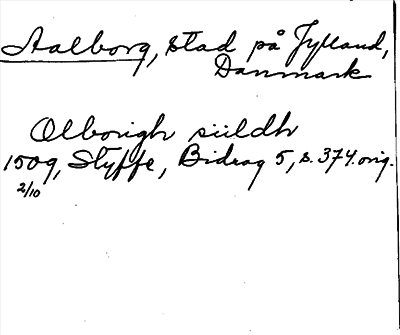 Aalborg, stad på Jylland,
Danmark
Olborigh siildh
1509, Styffe, Bidrag 5, s. 374. orig.
2/10